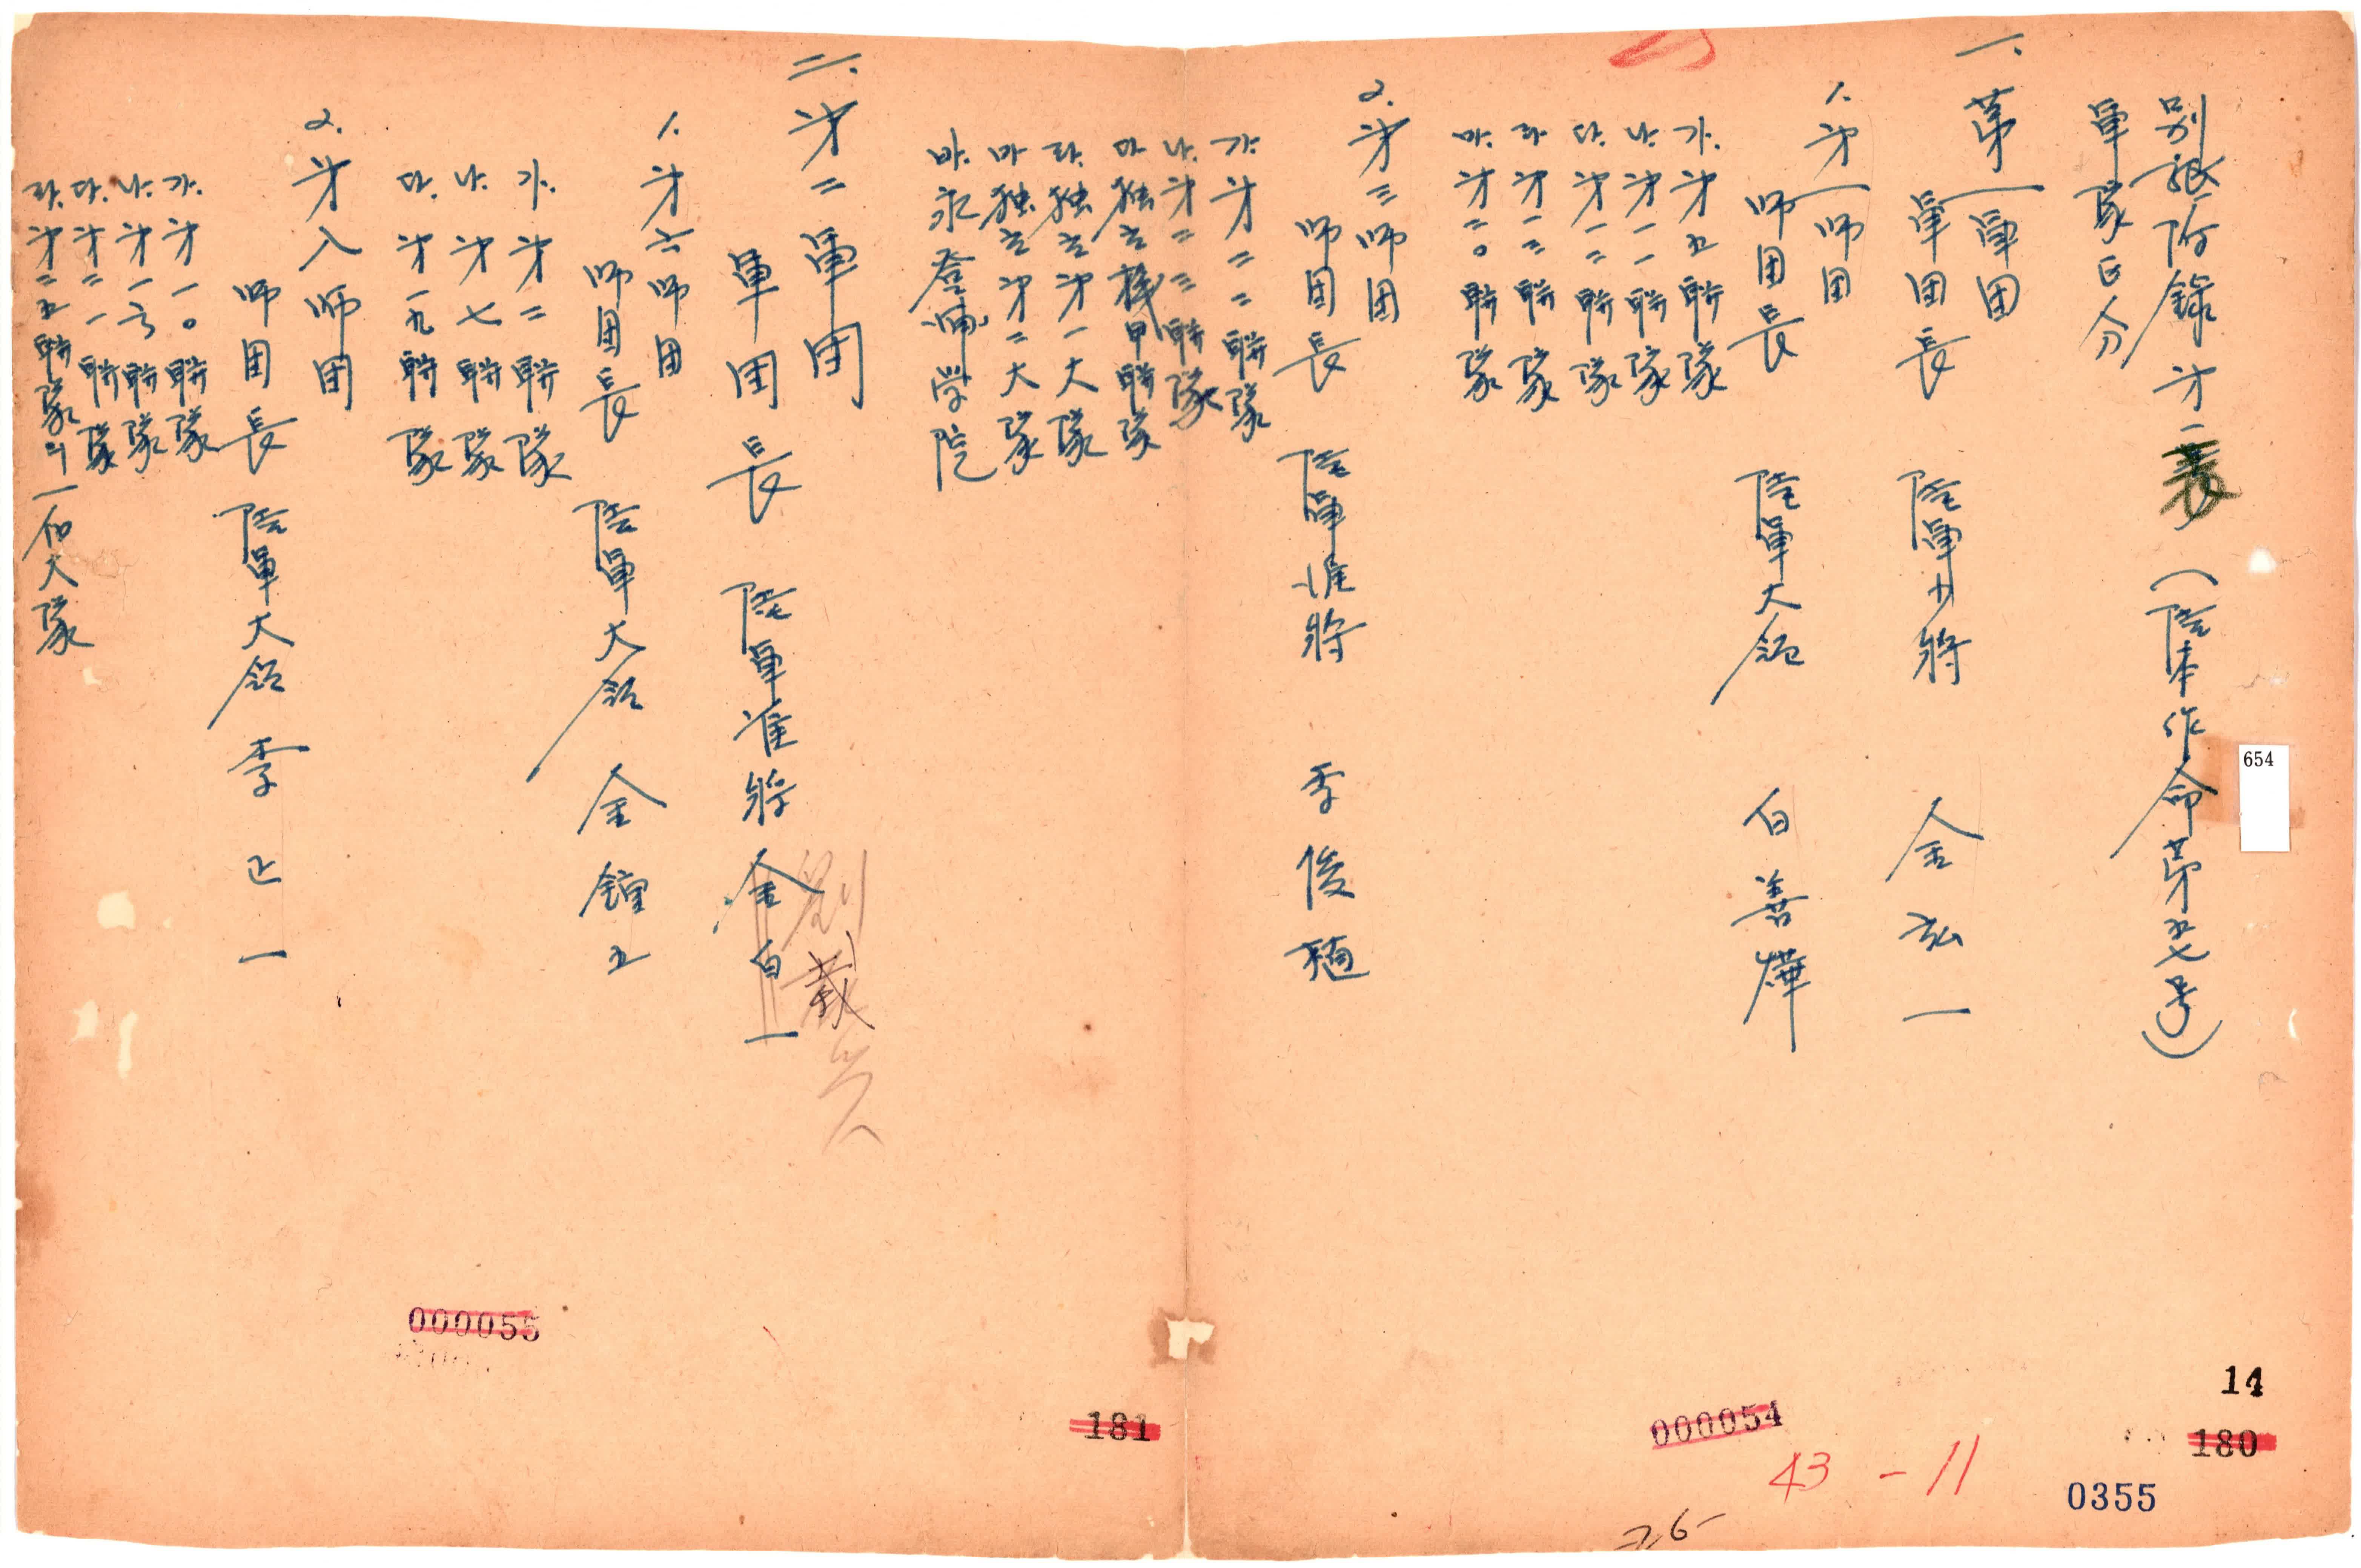 別紙附錄才一表 (陸本作命第五七号)
軍隊区分
一. 第一軍団
軍団長 陸軍少將 金弘一
1. 才一师团
师团長 陸軍大領 白善燁
가. 才五聯隊
나. 才一一聯隊
다. 才一二聯隊
라. 才一三聯隊
마. 才二〇聯隊
2. 才三师团
师团長 陸軍准將 李俊植
가. 才二二聯隊
나. 才二三聯隊
다 独立機甲聯隊
라. 独立才一大隊
마 独立才二大隊
바. 永登浦学院
二. 才二軍団
軍団長 陸軍准將 金白一
劉載兴
1. 才六师团
师团長 陸軍大領 金鐘五
가. 才二聯隊
나. 才七聯隊
다. 才一九聯隊
2. 才八师団
师団長 陸軍大領 李正一
가. 才一〇聯隊
나. 才一六聯隊
다. 才二一聯隊
라. 才二五聯隊의 一個大隊
654
000055
181
000054
43-11
14
180
0355